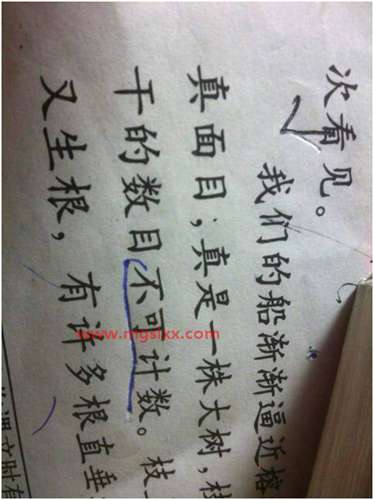 次看见。
我们的船渐渐逼近榕
真面目;真是一株大树,枝
干的数目不可计数。枝
又生根,有许多根直垂
课文时
www.mgslxx.com